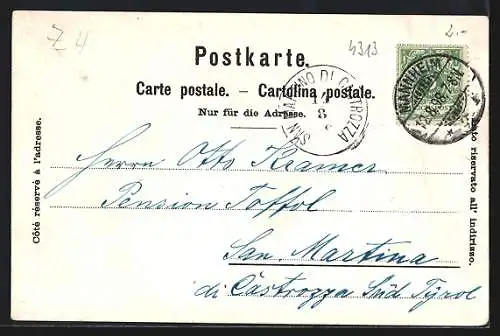 Z 4
4313
2.-
Postkarte.
Carte postale. – Cartolina postale.
Nur für die Adresse.
SAN MARTINO DI CASTROZZA
14
8
MANNHEIM
Côté réservé à l'adresse.
Lato riservato all' indirizzo.
Herrn Otto Kramer
Pension Toffol
San Martina
di Castrozza Süd Tyrol